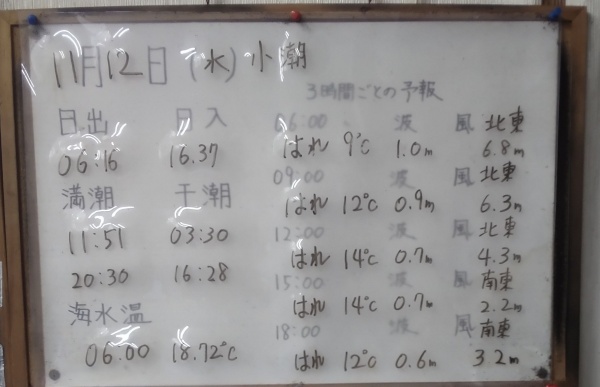 11月12日(水)小潮
日出 日入
06:16 16.37
満潮 干潮
11:51 03:30
20:30 16:28
海水温
06.00 18.72℃
3時間ごとの予報
06:00 波 風 北東
はれ 9℃ 1.0m 6.8m
09:00 波 風 北東
はれ 12℃ 0.9m 6.3m
12:00 波 風 北東
はれ 14℃ 0.7m 4.3m
15:00 波 風 南東
はれ 14℃ 0.7m 2.2m
18:00 波 風 南東
はれ 12℃ 0.6m 3.2m